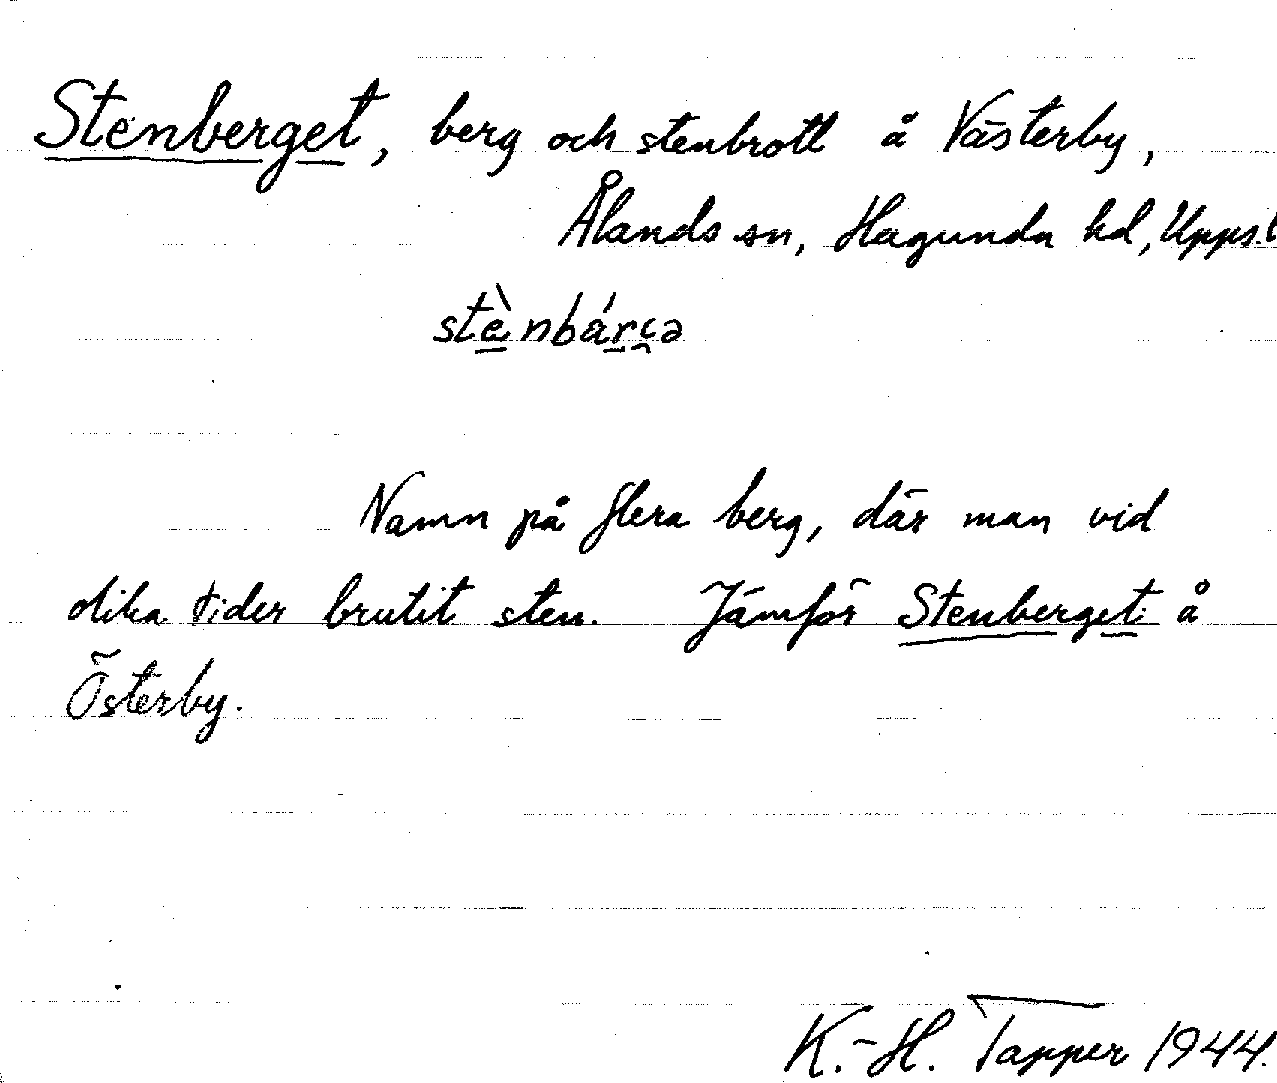 Stenberget, berg och stenbrott å Västerby,
Ålands sn, Hagunda hd, Upps.l
stènbárçə
Namn på flera berg, där man vid
olika tider brutit sten. Jämför Stenberget å
Österby.
K.-H. Tapper 1944.